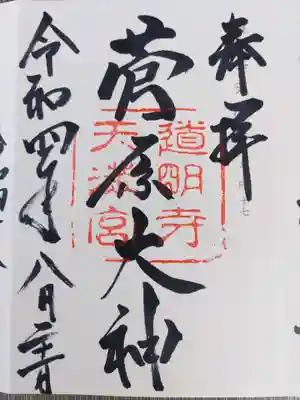 奉拝
菅原大神
道明寺
天満宮
令和四年八月